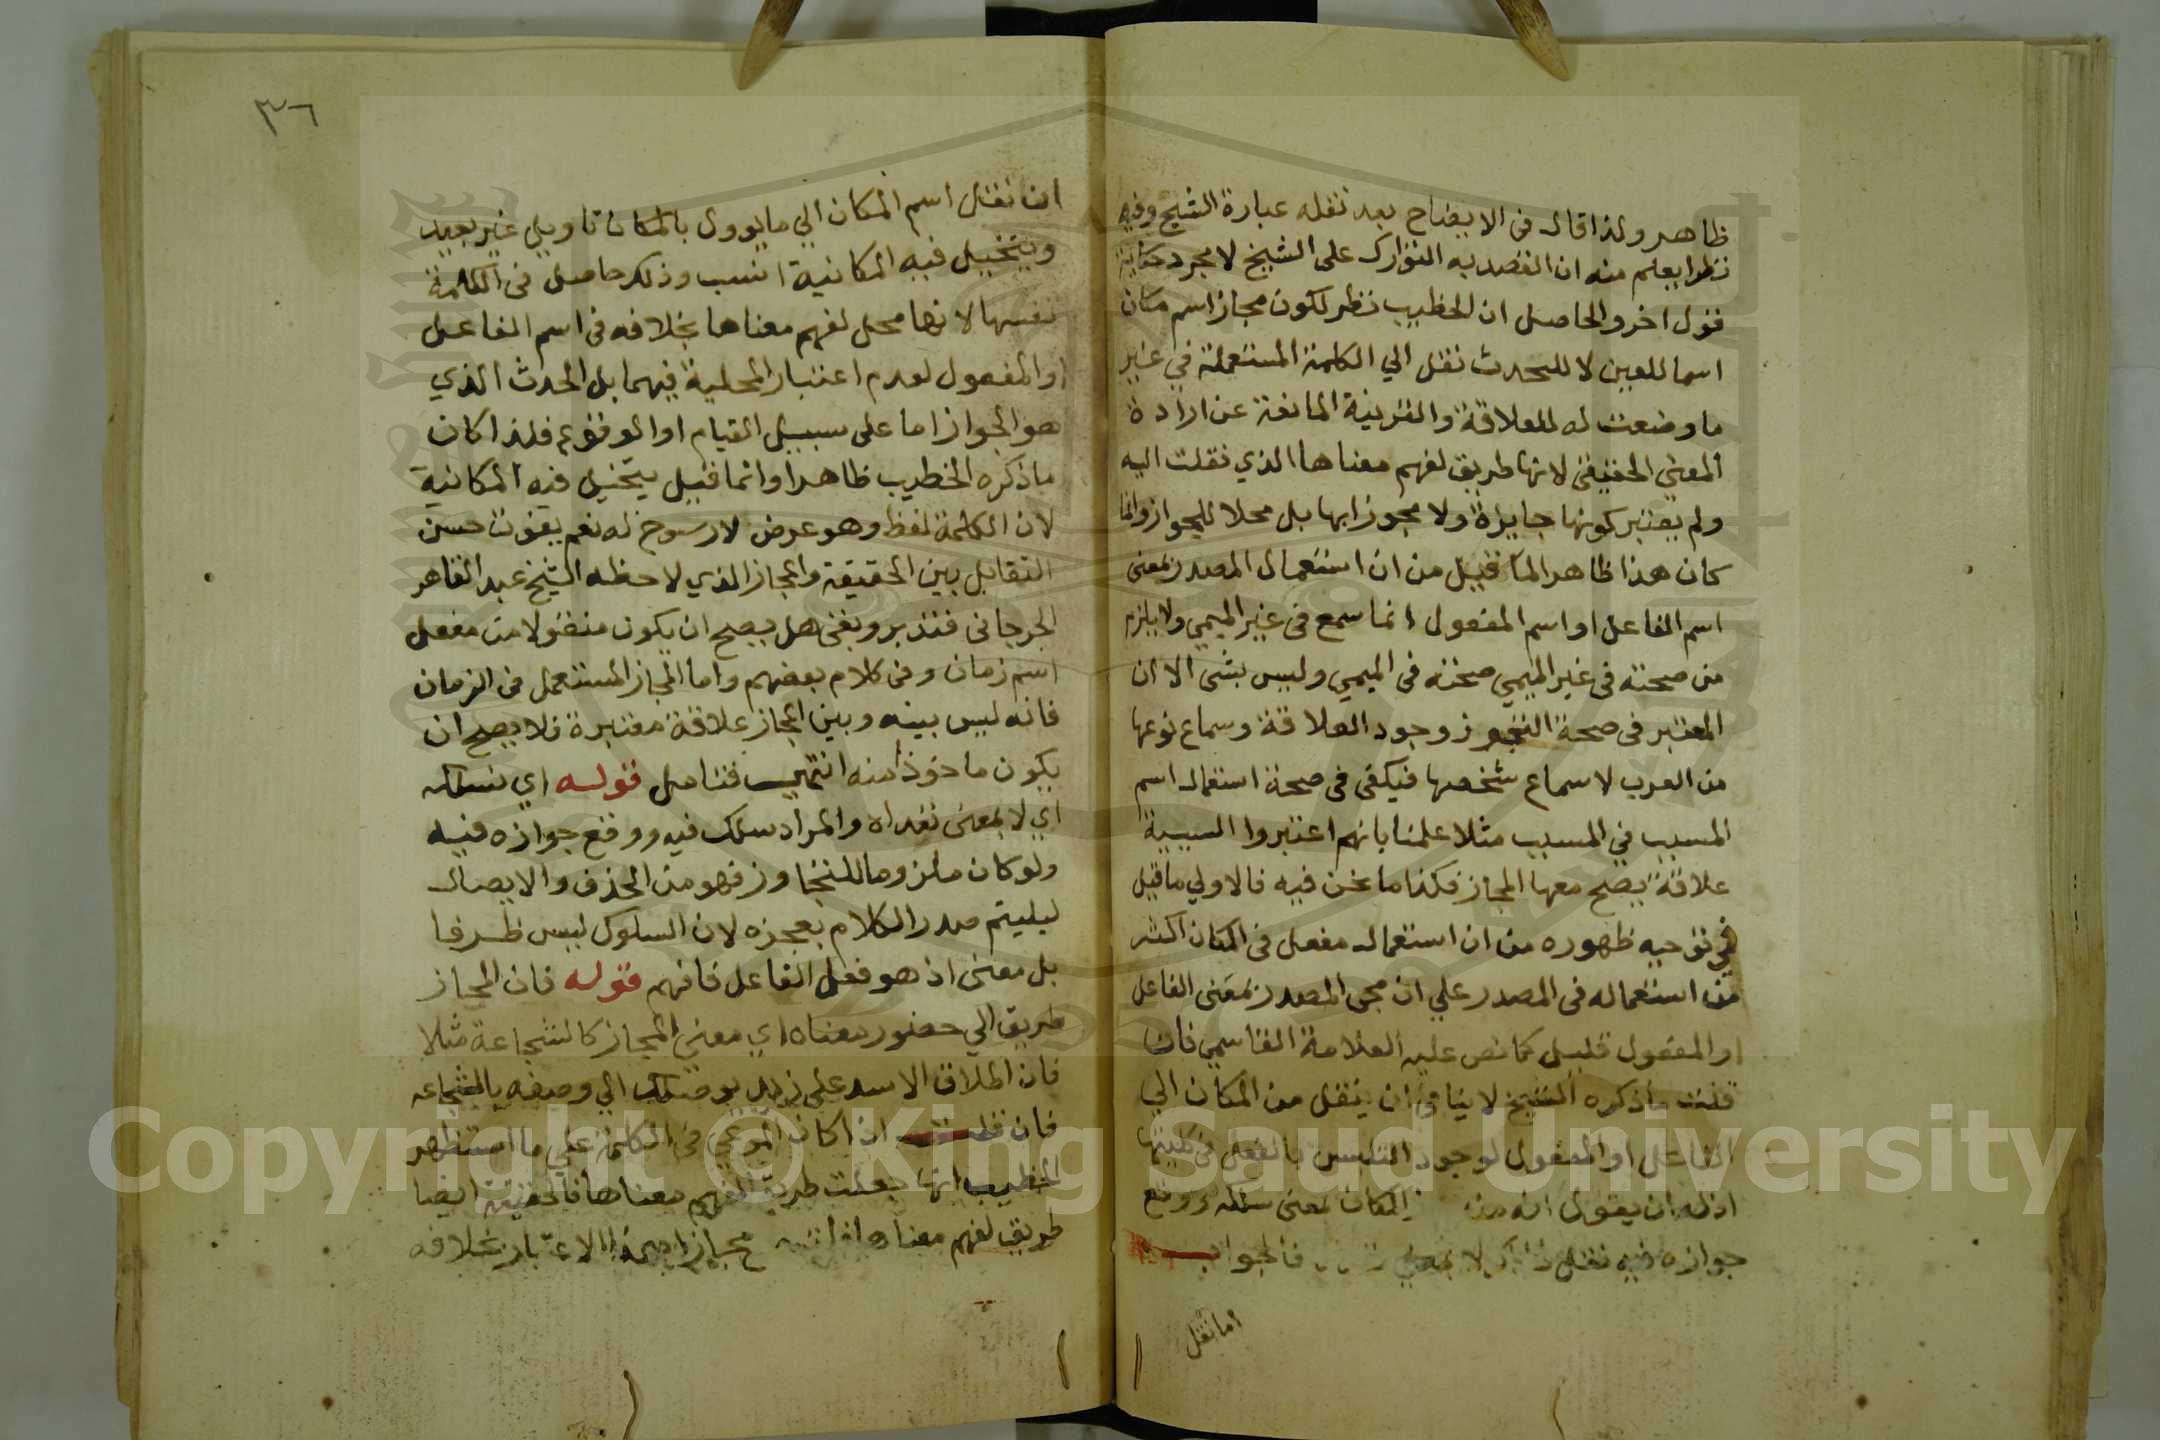 ظاهر ولذا قال في الايضاح بعد نقله عبارة الشيخ وفيه
نظرا يعلم منه ان القصد به التوارك على الشيخ لا مجرد حكاية
قول اخر والحاصل ان للخطيب نظر لكون مجاز اسم مكان
اسما للعين لا للحدث نقل الي الكلمة المستعملة في غير
ما وضعت له للعلاقة والقرينة المانعة عن ارادة
المعني الحقيقي لانها طريق لفهم معناها الذي نقلت اليه
ولم يعتبر كونها جايزة ولا مجوزا بها بل محلا للجواز وانما
كان هذا ظاهر الما قيل من ان استعمال المصدر بمعنى
اسم الفاعل او اسم المفعول انما سمع في غير الميمي ولا يلزم
من صحته في غير الميمي صحته في الميمي وليس بشى الا ان
المعتبر في صحة التجوز وجود العلاقة وسماع نوعها
من العرب لا سماع شخصها فيكفى في صحة استعمال اسم
المسبب في المسبب مثلا علمنا بانهم اعتبروا السببية
علاقة يصح معها المجاز فكذا ما نحن فيه فالاولي ما قيل
في توجيه ظهوره من ان استعمال مفعل في المكان اكثر
من استعماله في المصدر علي ان مجى المصدر بمعنى الفاعل
او المفعول قليل كما نص عليه العلامة القاسمي فان
قلت ما ذكره الشيخ لا ينافي ان ينقل من المكان الي
الفاعل او المفعول لوجود التلبس بالفعل في كليتها
اذ له ان يقول انه من المكان بمعنى سلكه ووقع
جوازه فيه نقل لا بمعني فالجواب
اما نقل
٣٦
ان نقل اسم المكان الي ما يوول بالمكان تاويلي غير بعيد
ويتخيل فيه المكانية انسب وذلك حاصل في الكلمة
نفسها لانها محل لفهم معناها بخلافه في اسم الفاعل
او المفعول لعدم اعتبار المحلية فيهما بل الحدث الذي
هو الجواز اما على سبيل القيام او الوقوع فلذا كان
ما ذكره الخطيب ظاهرا وانما قيل يتخيل فيه المكانية
لان الكلمة لفظ وهو عرض لا رسوخ له نعم يفوت حسن
التقابل بين الحقيقة والمجاز الذي لاحظه الشيخ عبد القاهر
الجرجاني فتدبر وبقى هل يصح ان يكون منقولا من مفعل
اسم زمان وفي كلام بعضهم واما المجاز المستعمل في الزمان
فانه ليس بينه وبين المجاز علاقة معتبرة فلا يصح ان
يكون ماخوذا منه انتهي فتامل قوله اي سلكه
اي لا بمعنى تعداه والمراد سلك فيه ووقع جوازه فيه
ولو كان ملزوما للتجاوز فهو من الحذف والايصال
ليليتم صدر الكلام بعجزه لان السلوك ليس ظرفا
بل معنى اذ هو فعل الفاعل فافهم قوله فان المجاز
طريق الي حضور معناه اي معني المجاز كالشجاعة مثلا
فان اطلاق الاسد على زيد يوصلك الي وصفه بالشجاعه
فان قلت اذا كان المرعي في الكلمة علي ما استظهر
الخطيب انها جعلت طريق لفهم معناها فالحقيقة ايضا
طريق لفهم معناه مجازا بهذا الاعتبار بخلافه